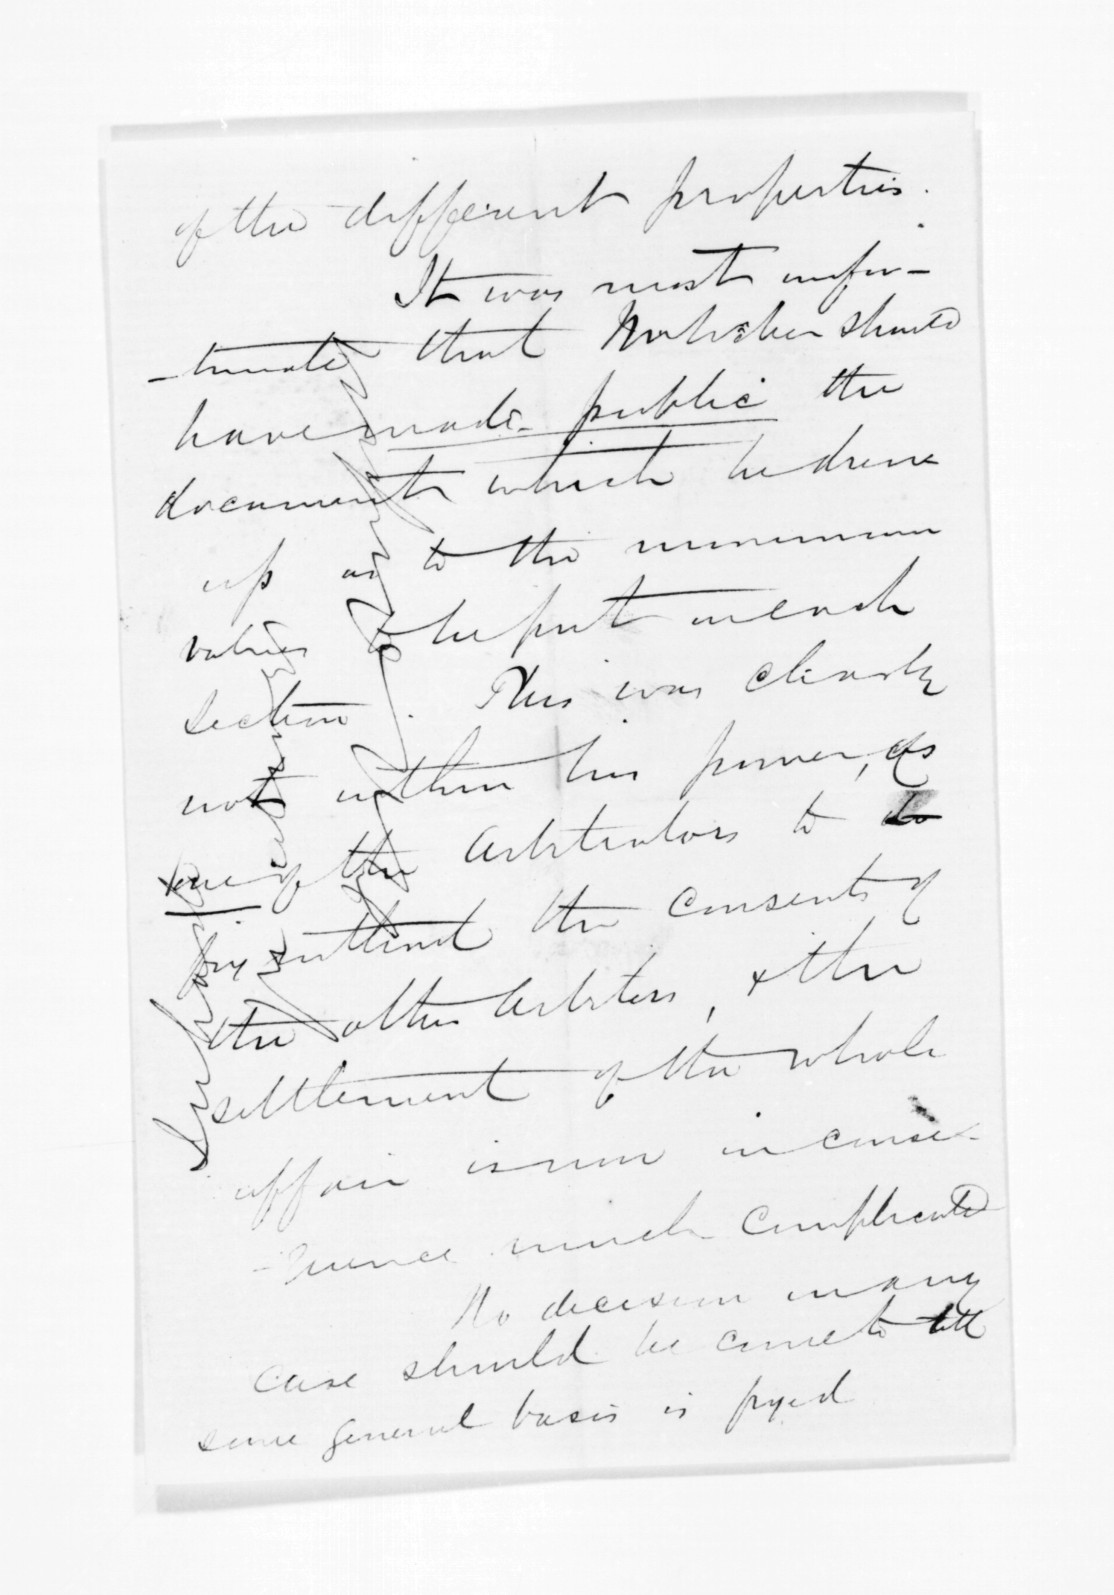 of the different properties.
It was most unfor-
-tunate that should
have made public the
documents which he drew
up as to the minimum
values to be put in each
section. This was clearly
not within his power, as
one of the Arbitrators to do
without the consents of
the other Arbiters, & the
settlement of the whole
affair is now in conse-
-quence much complicated
No decision in any
case should be come to till
some general basis is fixed